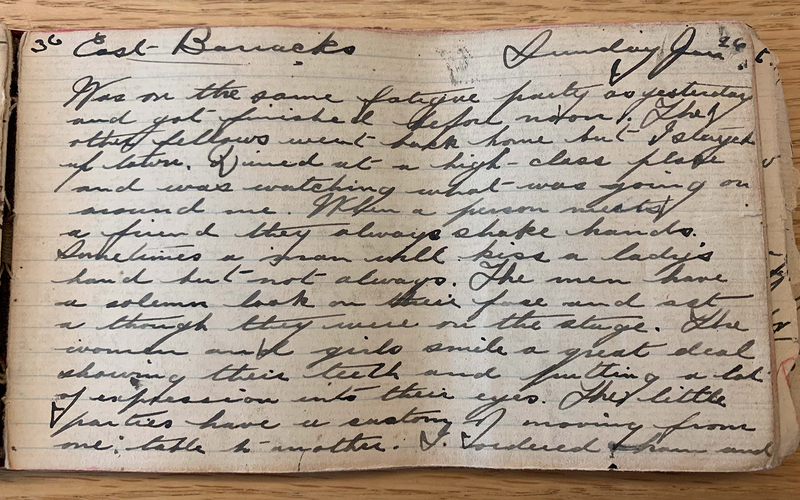 36 East Barracks Sunday Jan. 26
Was on the same fatigue party as yesterday
and got finished before noon. The
other fellows went back home but I stayed
up town. Dined at a high-class place
and was watching what was going on
around me. When a person meets
a friend they always shake hands.
Sometimes a man will kiss a lady's
hand but not always. The men have
a solemn look on their face and act
a though they were on the stage. The
women and girls smile a great deal
showing their teeth and putting a lot
of expression into their eyes. The little
parties have a custom of moving from
one table to another. I ordered ham and